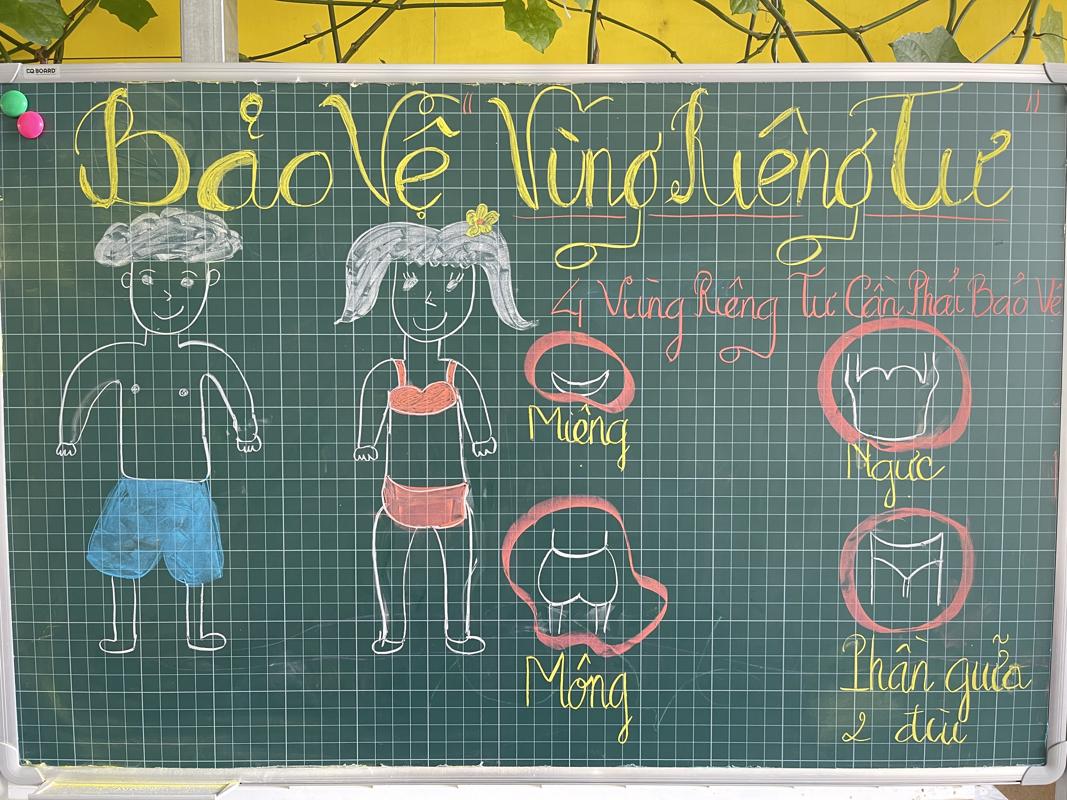 CQ BOARD
Bảo Vệ "Vùng Riêng Tư"
4 Vùng Riêng Tư Cần Phải Bảo Vệ
Miệng
Ngực
Mông
Phần giữa
2 đùi